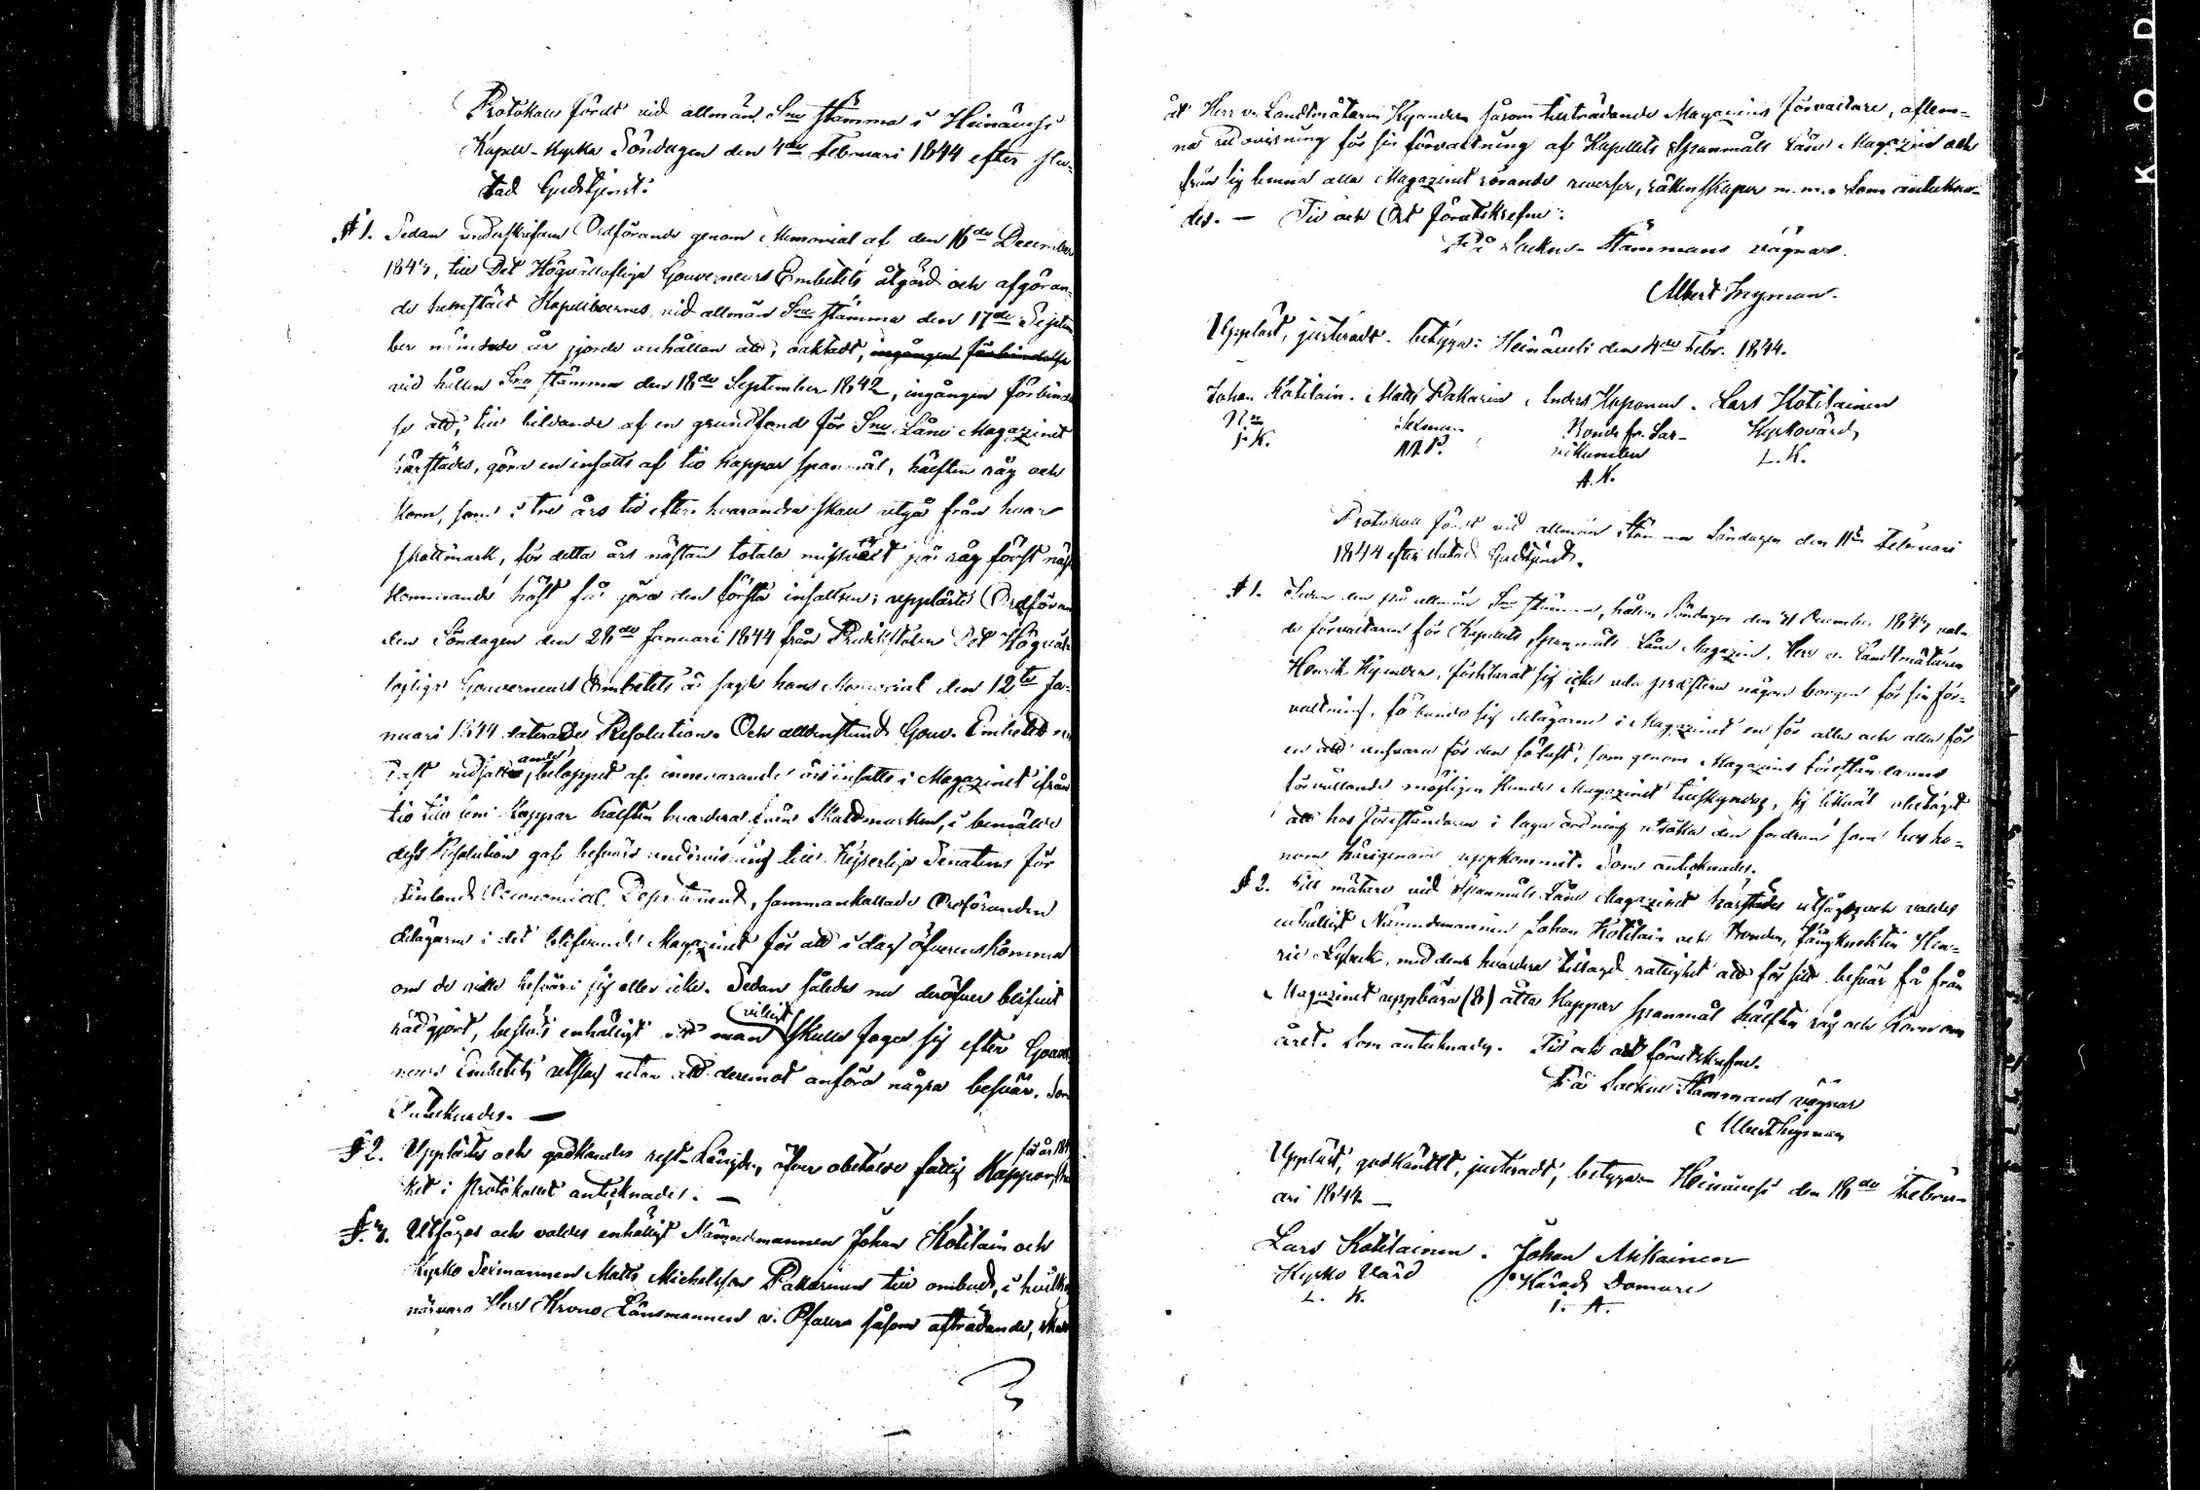 Protokoll fördt vid allmän Sne stämma i Heinävesi
Kapell-Kyrka Söndagen den 4de Februari 1844 efter slu-
tad Gudstjenst:
§ 1. Sedan undertecknad Ordförande genom Memorial af den 16de December
1843, till Det Högvällofliga Gouverneurs Embetets åtgärd och afgöran-
de hemstält Kapellboernes vid allmän Sne stämma den 17de Septem
ber nämnde år gjorde anhållan att, oaktadt, ingången förbindelse
vid hållen Sne stämma den 18de September 1842, ingången förbindel
se att, till bildande af en grundfond för Sne Låne Magazinet
härstädes, göra en insatts af tio kappar spanmål, hälften råg och
korn, som i tre års tid efter hvarandra skall utgå från hvar
skattmark, för detta års nästan totala missväxt på råg först näst
kommande höst få göra den första insattsen; uppläste Ordföran
den Söndagen den 28de Januari 1844 från Predikstolen Det Högväl-
lofliga Gouverneurs Embetets å sagde hans Memorial den 12te Ja-
nuari 1844 laterade Resolution. Och alldenstund Gouv. Embetet
nedsättande beloppet af innevarande års insatts i Magazinet ifrån
tio till fem Kappar hälften hvardera från Skattmarken, i bemälde
dess Resolution gaf besvärs undervisning till Kejserliga Senatens för
Finland Oeconomiae Departement, sammankallade Ordföranden
delägarne i det blifvande Magazinet för att i dag öfverenskomma
om de ville besvära sig eller icke. Sedan således nu deröfver blifvit
rådgjort, beslöts enhälligt att man villigt skulle foga sig efter Gouver
neurs Embetets utslag utan att deremot anföra några besvär. Som
Antecknades. —
§ 2. Upplästes och godkändes rest-Längden, öfver obetalde fattig Kappar, för år 184
ket i Protokollet antecknades. —
§. 3. Utsågos och valdes enhälligt Nämndemannen Johan Kotilain och
Kyrko Sexmannen Matts Michelsson Pakarinen till ombud, i hvilkas
närvaro Herr Krono Länsmannen v. Pfaler såsom afträdande, skall
åt Herr v. Landtmätaren Kyander såsom tillträdande Magazins förvaltare, aflem-
na redovisning för sin förvaltning af Kapellets Spanmåls Låne-Magazin och
från sig lemna alla Magazinet rörande reverser, räkenskaper m.m. Som antecknades.
des. — Tid och Ort förutskrefne:
På Sockne-Stämmans vägnar.
Albert Ingman.
Uppläst, justeradt. betyga: Heinävesi den 4de Febr. 1844.
Johan Kotilain. Matts Pakarin. Anders Koponen. Lars Kotilainen
Nn Sexman. Bonde fr. Sar- Kyrkovärd
J. K. M. P. vikumbu L. K.
A. K.
Protokoll fördt vid allmän Stämma Söndagen den 11te Februari
1844 efter slutad Gudstjenst.
§ 1. Sedan den på allmän Sne stämma, hållen Söndagen den 31 December 1843 val-
de förvaltaren för Kapellets Spanmåls Låne Magazin, Herr v. Landtmätaren
Henrik Kyander, förklarat sig icke vela præstera någon borgen för sin för-
valtning, förbundo sig delägarne i Magazinet en för alla och alla för
en att ansvara för den förlust, som genom Magazins Föreståndarens
förvållande möjligen kunde Magazinet tillskyndas, sig likväl obetaget
att hos föreståndaren i laga ordning utsöka den fordran som hos ho-
nom härigenom uppkommit. Som antecknades.
§ 2. Till mätare vid Spanmåls Låne Magazinet härstädes utsågos och valdes
enhälligt Nämndemannen Johan Kotilain och Bonden, fångknekten Hen-
ric Lybeck, med dem hvardera tillagd rättighet att för sitt besvär få från
Magazinet uppbära (8) åtta Kappar spanmål hälften råg och korn om
året. Som antecknades. Tid och ort förutskrefne.
På Sockne Stämmans vägnar
Albert Ingman
Uppläst, godkändt, justeradt, betyga. Heinävesi den 18de Febru-
ari 1844 —
Lars Kotilainen. Johan Asikainen
Kyrko Värd Härads Domare
L. K. J. A.
KOD